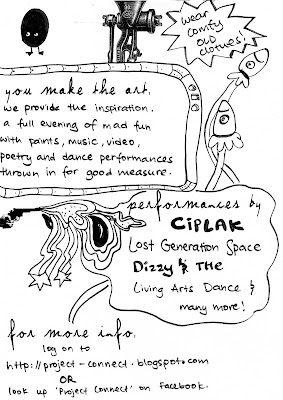 wear
comfy
OLD
clothes!
you make the art.
we provide the inspiration.
a full evening of mad fun
with paints, music, video,
poetry and dance performances
thrown in for good measure.
performances by
CIPLAK
Lost Generation Space
Dizzy & THE
Living Arts Dance &
many more!
for more info.
log on to
http://project-connect.blogspot.com
OR
look up 'Project Connect' on Facebook.